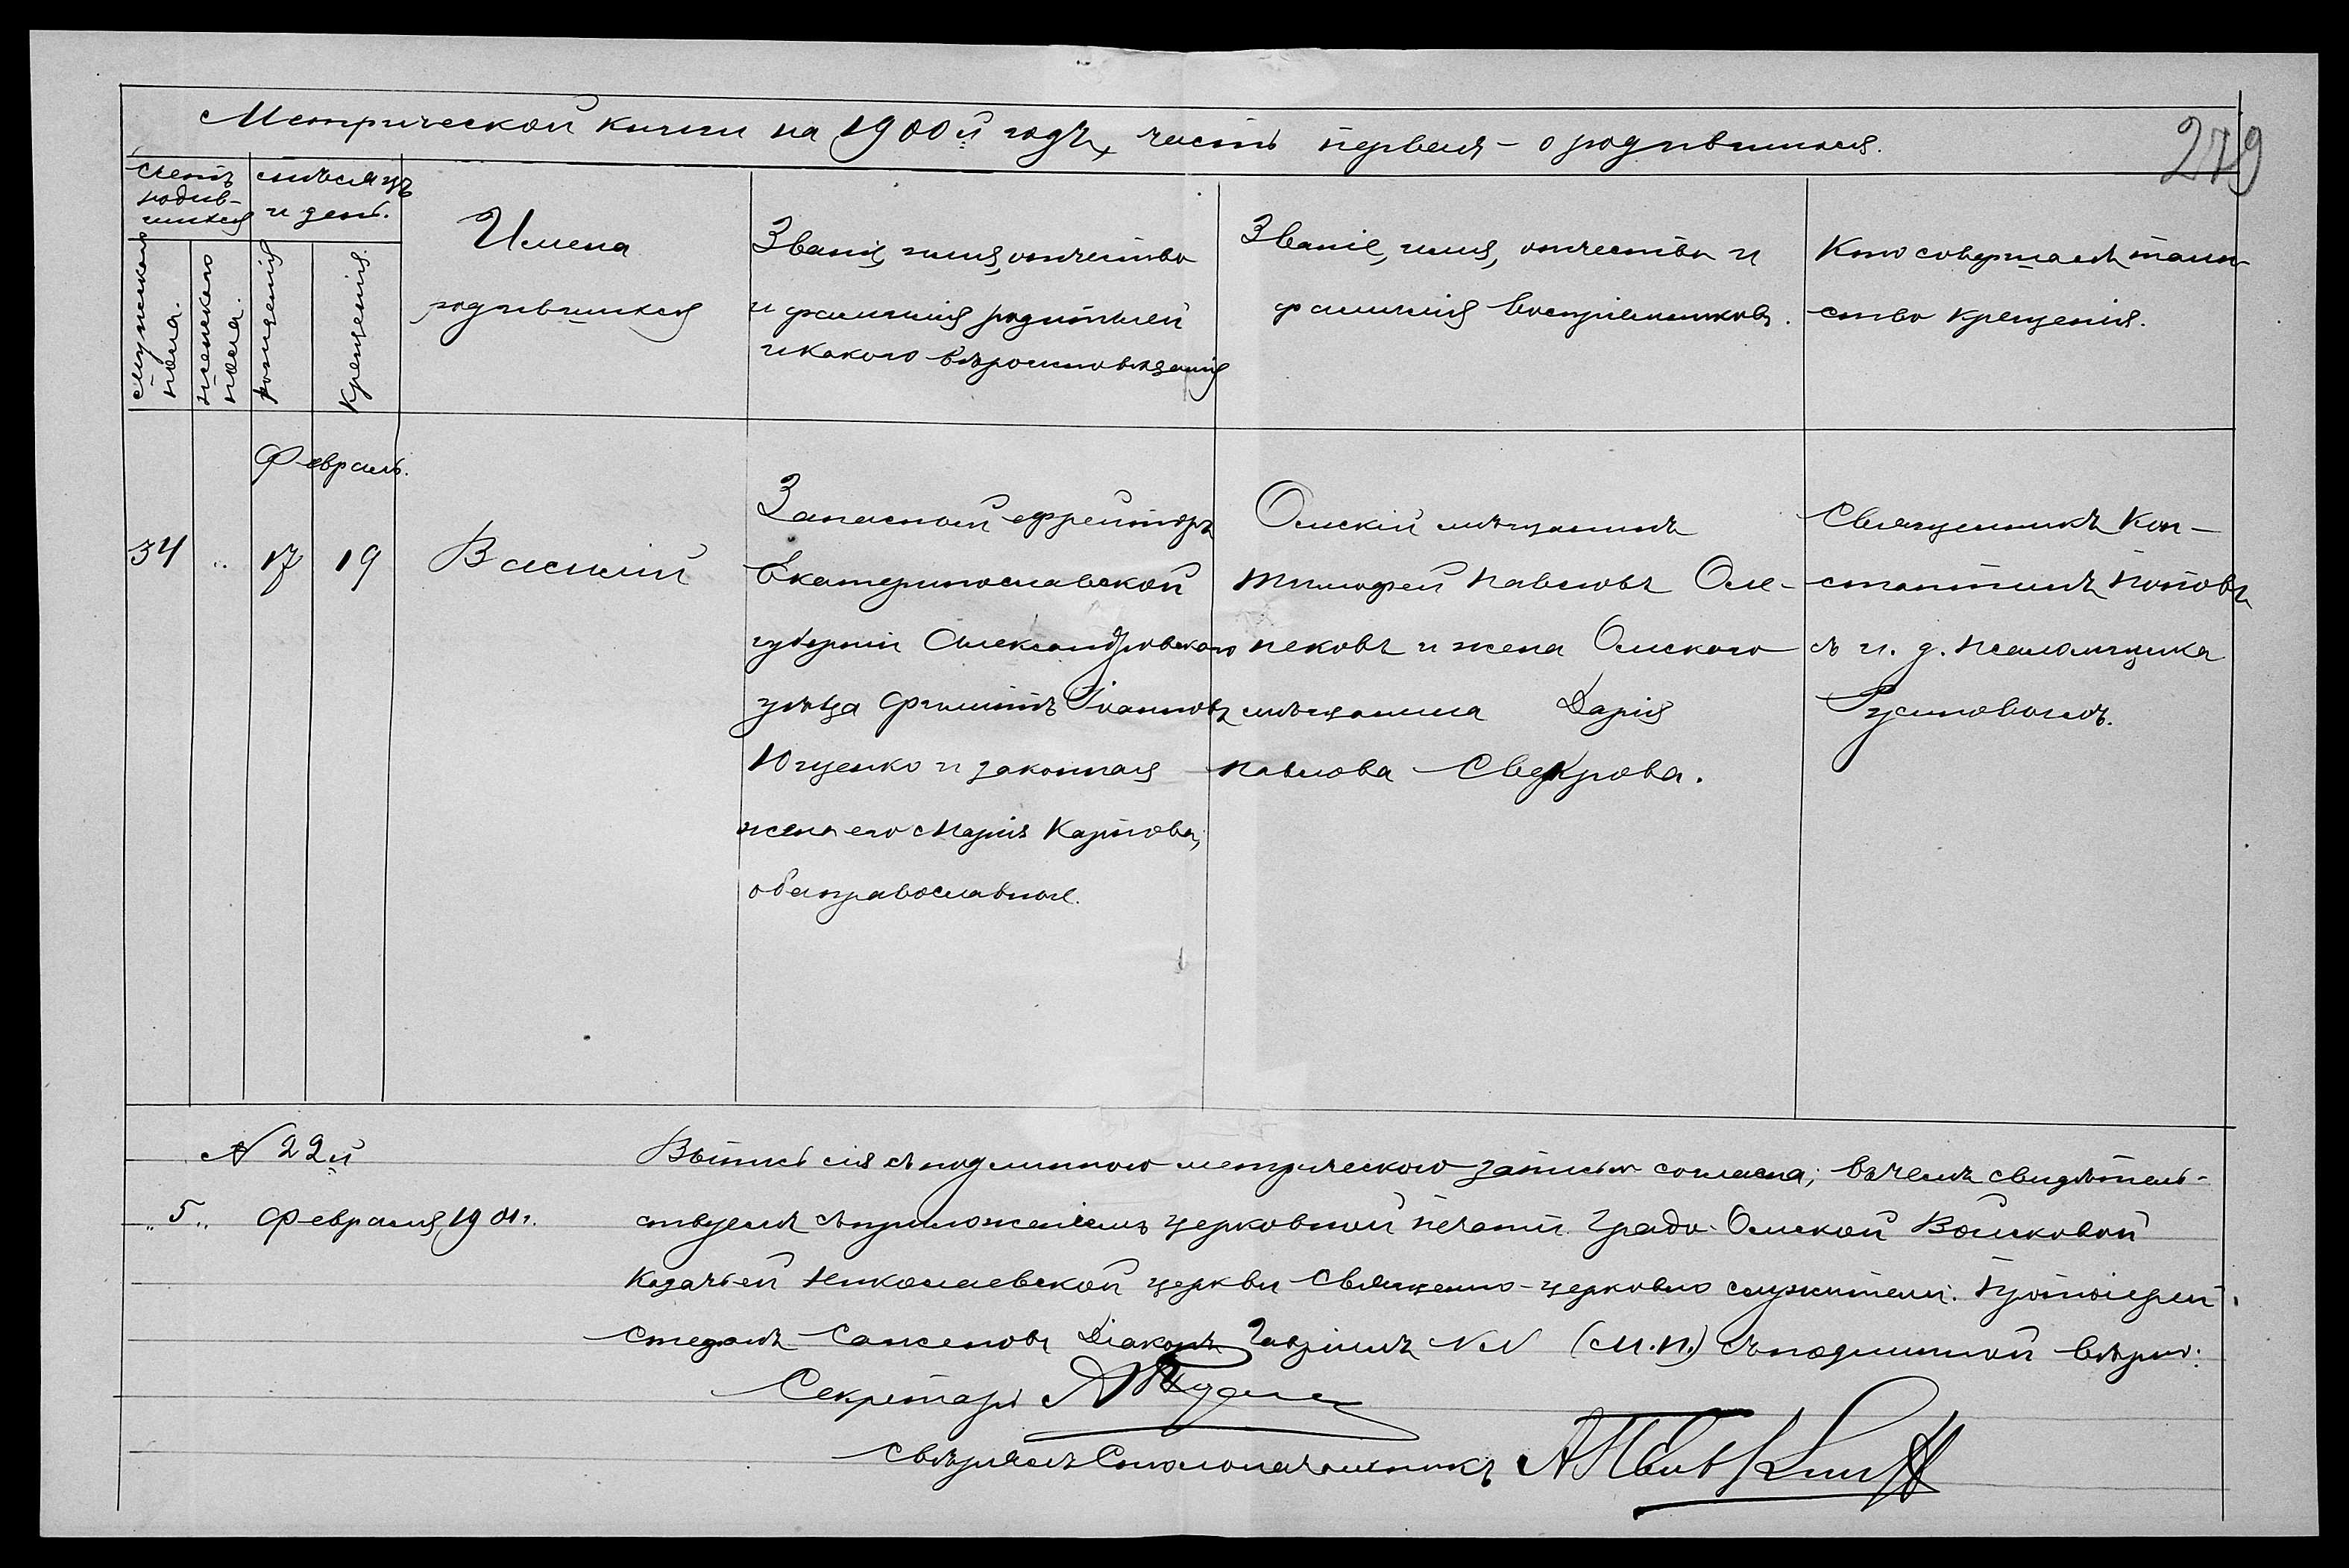 Метрической книги на 1900й годъ, часть первая – о родившихся.
279
Счетъ родив-
шихся
Мужескаго
пола.
Женскаго
пола.
Мѣсяцъ
и день.
Рожденія
Крещенія.
Имена
родившихся
Званіе, имя, отчество
и фамилія родителей
и какого вѣроисповѣданія
Званіе, имя, отчество и
фамилія воспріемниковъ.
Кто совершалъ таин-
ство крещенія.
Февраль.
34
"
17
19
Василій
Запасный ефрейторъ
Екатеринославской
губерніи Александровскаго
уѣзда Филиппъ Іоанновъ
Ющенко и законная
жена его Марія Карпова,
оба православные.
Омскій мѣщанинъ
Тимофей Павловъ Оле-
нековъ и жена Омскаго
мѣщанина Дарія
Павлова Свекрова.
Священникъ Кон-
стантинъ Поповъ
съ и. д. псаломщика
Гусиновымъ.
№ 22й
"5" Февраля 1901г.
Выпись сія съ подлинною метрическою записью согласна; въ чемъ свидѣтель-
ствуемъ съ приложеніемъ церковной печати Градо-Омской Войсковой
Казачьей Николаевской церкви Священно-церковно служители: Протоіерей
Стефанъ Саксеновъ Діаконъ Гавріилъ NN (М.П.) Съ подлинной вѣрно:
Секретарь
Свѣрялъ Столоначальникъ